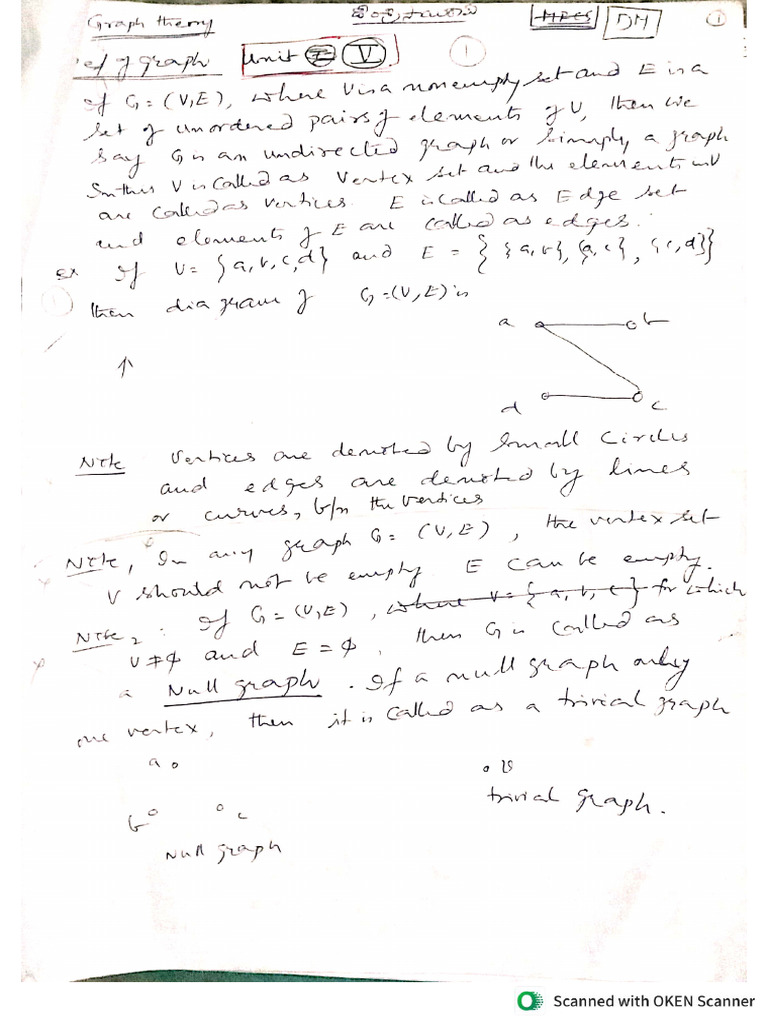 Graph theory
MFCS DM 1
ef of graph Unit I V 1
If G = (V,E), where V is a nonempty set and E is a
set of unordered pairs of elements of V, then we
say G is an undirected graph or simply a graph
In this V is called as Vertex set and the elements in V
are called as vertices. E is called as Edge set
and elements of E are called as edges.
ex If V = {a,b,c,d} and E = { {a,b}, {a,c}, {c,d}}
1 then diagram of G = (V,E) is
a b
d c
Note Vertices are denoted by small circles
and edges are denoted by lines
or curves, b/n the vertices
Note, In any graph G = (V,E), the vertex set
V should not be empty E can be empty.
Note 2: If G = (V,E), where V = {a, b, c} for which
V ≠ ϕ and E = ϕ, then G is called as
a Null graph. If a null graph only
one vertex, then it is called as a trivial graph
a v
b c trivial graph.
Null graph
Scanned with OKEN Scanner